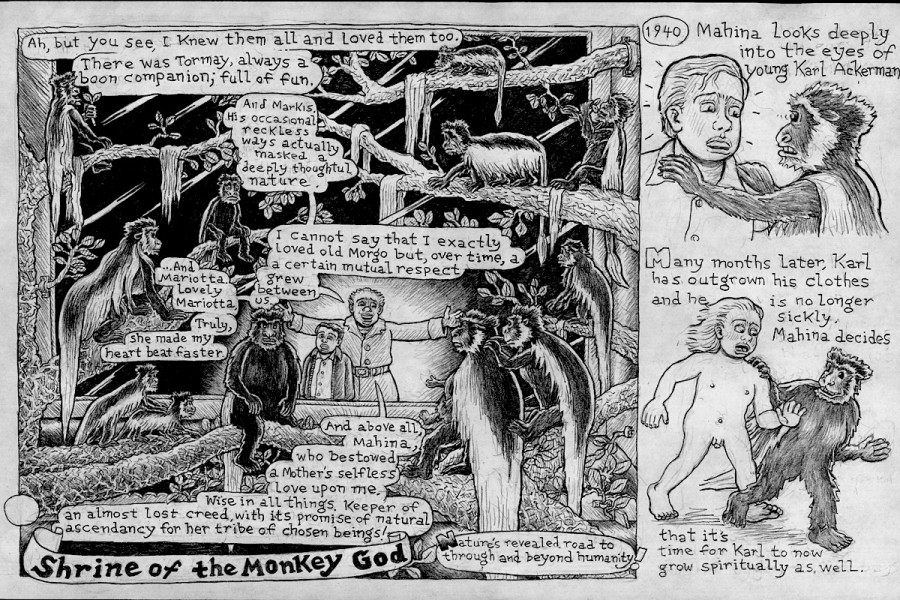 Ah, but you see, I knew them all and loved them too.
There was Tormay, always a
boon companion; full of fun,
And Markis,
His occasional
reckless
ways actually
masked a
deeply thoughtful
nature.
I cannot say that I exactly
loved old Morgo but, over time, a
a certain mutual respect
grew
between
us.
...And
Mariotta
Lovely
Mariotta
Truly,
she made my
heart beat faster.
And above all,
Mahina,
who bestowed
a Mother's selfless
love upon me.
Wise in all things, Keeper of
an almost lost creed, with its promise of natural
ascendancy for her tribe of chosen beings!
Shrine of the Monkey God
Nature's revealed road to
through and beyond humanity!
1940 Mahina looks deeply
into the eyes of
young Karl Ackerman
Many months later, Karl
has outgrown his clothes
and he is no longer
sickly.
Mahina decides
that it's
time for Karl to now
grow spiritually as, well.